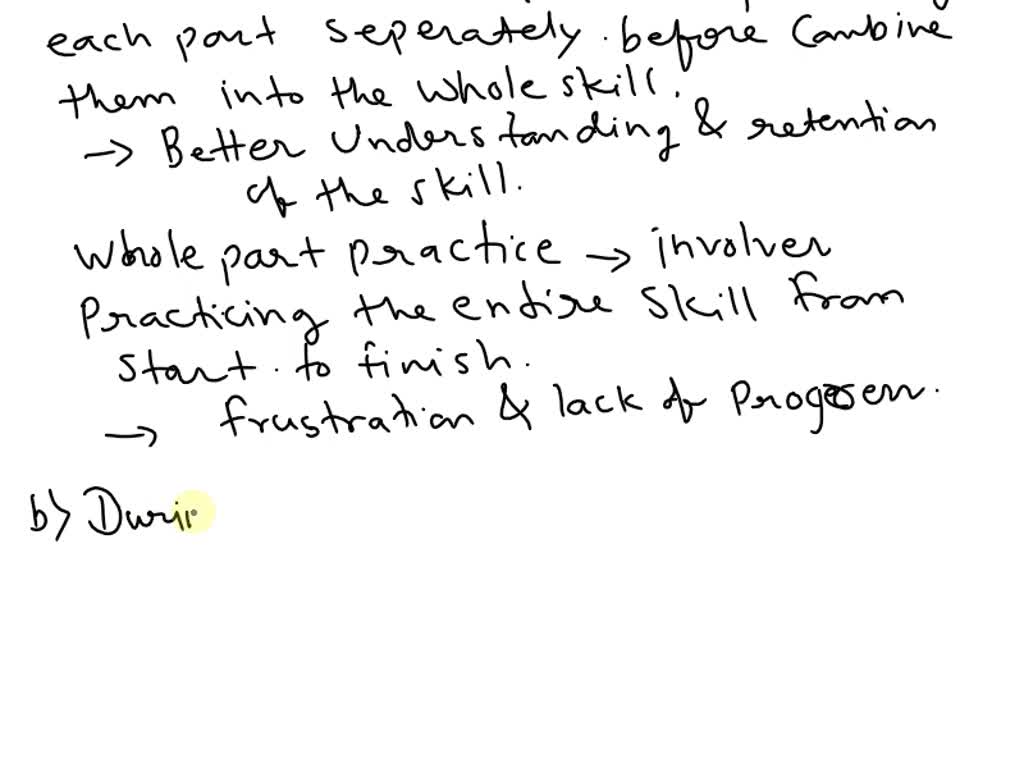 each part seperately. before Combine
them into the whole skill.
→ Better Understanding & retention
of the skill.
Whole part practice → involver
Practicing the entire skill from
start. to finish.
→ frustration & lack of
b) Durin